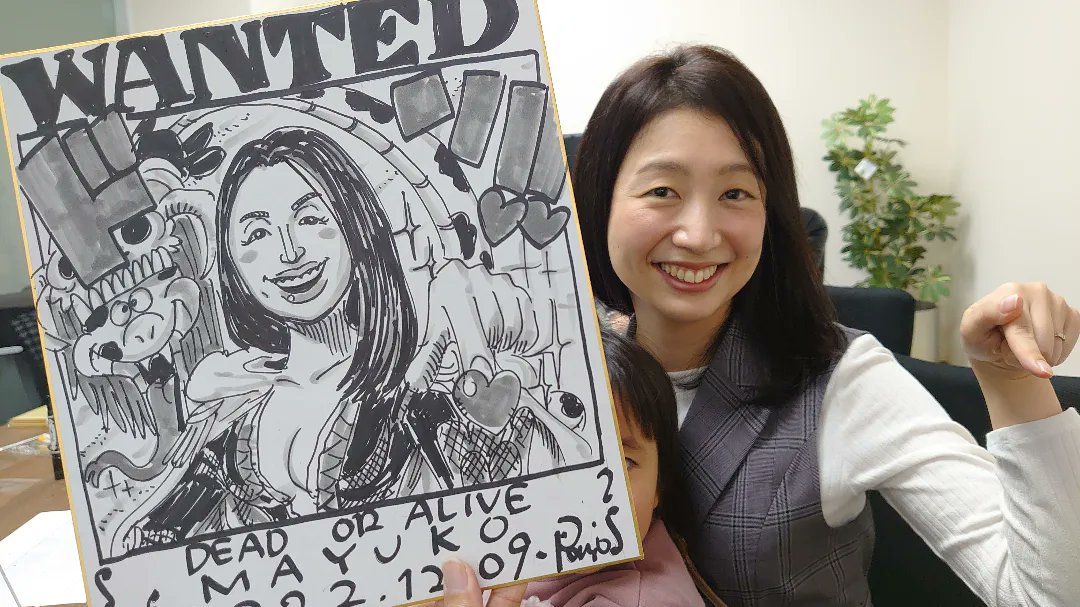 WANTED
DEAD OR ALIVE
MAYUKO
202.12.09.